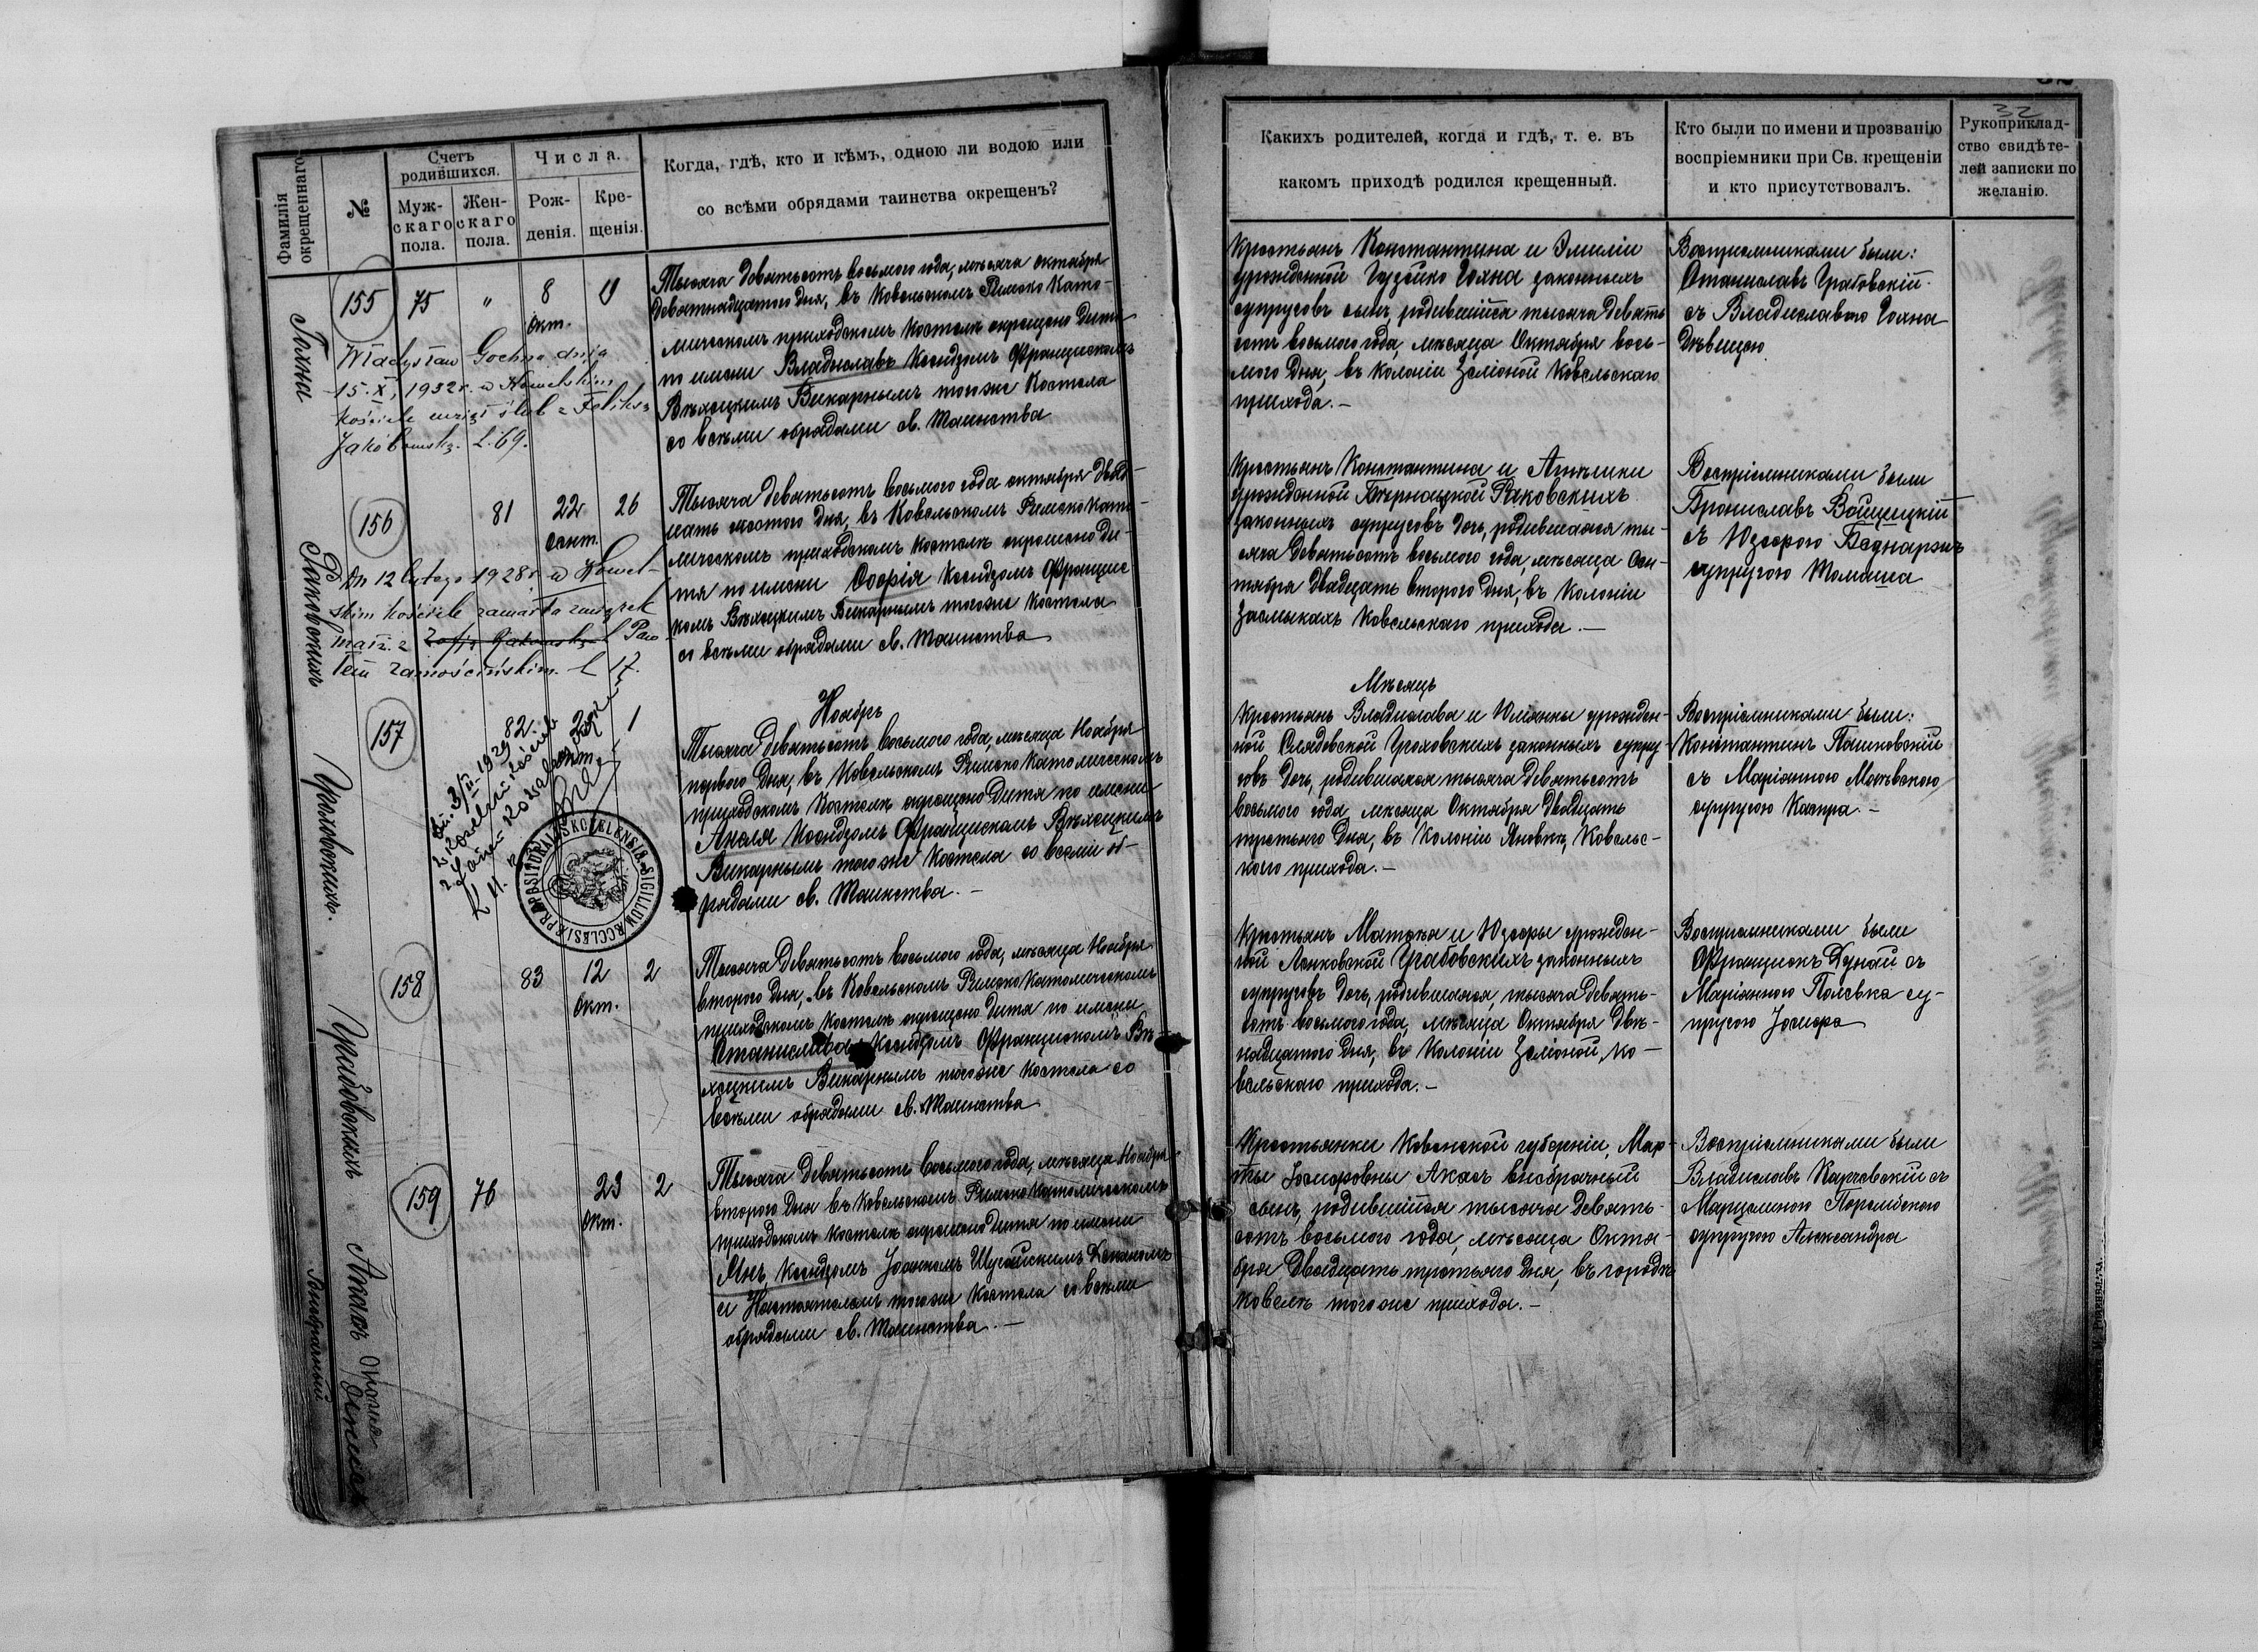 Фамилія окрещеннаго
№
Счетъ родившихся.
Муж-скаго пола.
Жен-скаго пола.
Числа.
Рож-денія.
Кре-щенія.
Когда, гдѣ, кто и кѣмъ, одною ли водою или
со всѣми обрядами таинства окрещенъ?
Гохна
155
75
"
8
Окт.
Władysław Gochna dnia
15.X.1932 r. w Kowelskim
kościele wziął ślub z Feliksą
Jakóbowską. L. 69.
Тысяча девятьсотъ восьмого года, мѣсяца октября
девятнадцатого дня, въ Ковельскомъ Римско Като-
лическомъ приходскомъ костелѣ окрещено дитя
по имени Владиславъ Ксендзомъ Францискомъ
Вѣхоцкимъ Викарнымъ тогоже Костела
со всѣми обрядами св. Таинства
Раковскихъ
156
81
22
сент.
26
Dn 12 lutego 1928 r. w Kowel-
skim kościele zawarła związek
małż. z Zofja Rakowska Paw
łem Zamościńskim. L 17.
Тысяча девятьсотъ восьмого года октября двад-
цать шестого дня, въ Ковельскомъ Римско Като-
лическомъ приходскомъ костелѣ окрещено ди-
тя по имени Софія Ксендзомъ Францис
комъ Вѣхоцкимъ Викарнымъ тогоже Костела
со всѣми обрядами св. Таинства
Гроховскихъ.
157
82
23
окт.
1
SIGILLUM ECCLESIÆ PRÆPOSITURALIS KOVELENSIS
Ноябрь
Тысяча девятьсотъ восьмого года, мѣсяца Ноября
перваго дня, въ Ковельскомъ Римско Католическомъ
приходскомъ Костелѣ окрещено дитя по имени
Анеля Ксендзомъ Францискомъ Вѣхоцкимъ
Викарнымъ тогоже Костела со всѣми об-
рядами св. Таинства.-
Грабовскихъ
158
83
12
Окт.
2
Тысяча девятьсотъ восьмого года, мѣсяца Ноября
второго дня, въ Ковельскомъ Римско Католическомъ
приходскомъ костелѣ окрещено дитя по имени
Станислава Ксендзомъ Францискомъ Вѣ-
хоцкимъ Викарнымъ тогоже Костела со
всѣми обрядами св. Таинства
Акасъ
Внебрачный
159
76
23
Окт.
2
Тысяча девятьсотъ восьмого года, мѣсяца Ноября
второго дня въ Ковельскомъ Римско Католическомъ
приходскомъ костелѣ окрещено дитя по имени
Янъ, Ксендзомъ Деканомъ
и Настоятелемъ тогоже Костела со всѣми
обрядами св. Таинства.-
32
Какихъ родителей, когда и гдѣ, т. е. въ
какомъ приходѣ родился крещенный.
Кто были по имени и прозванію
воспріемники при Св. крещеніи
и кто присутствовалъ.
Рукоприклад-
ство свидѣте-
лей записки по
желанію.
Крестьянъ Константина и Эмиліи
урожденной Гохна законныхъ
супруговъ сынъ, родившійся тысяча девять
сотъ восьмого года, мѣсяца Октября вось-
мого дня, въ колоніи Зеліоной Ковельскаго
прихода.-
Воспріемниками были:
Станиславъ Грабовскій
съ Владиславою Гохна
Дѣвицею
Крестьянъ Константина и
урожденной Раковскихъ
законныхъ супруговъ дочь, родившаяся ты-
сяча девятьсотъ восьмого года, мѣсяца Сен-
тября двадцать второго дня, въ Колоніи
Засмыкахъ Ковельскаго прихода.-
Воспріемниками были
Брониславъ Войцицкій
съ Юзефою Беднаржъ
супругою Томаша
Мѣсяцъ
Крестьянъ Владислава и Юліанны урожден-
ной Гроховскихъ законныхъ супру-
говъ дочь, родившаяся тысяча девятьсотъ
восьмого года мѣсяца Октября двадцать
третьяго дня, въ Колоніи Яновкѣ, Ковельс-
каго прихода.-
Воспріемниками были:
Константинъ Пашковскій
съ Маріанною
супругою Каспра.-
Крестьянъ Матвѣя и Юзефы урожден-
ной Грабовскихъ законныхъ
супруговъ дочь, родившаяся, тысяча девять-
сотъ восьмого года, мѣсяца Октября двѣ-
надцатого дня, въ Колоніи Зеліоной, Ко-
вельскаго прихода.-
Воспріемниками были
Францискъ Дунай съ
Маріанною су-
пругою Іосифа
Крестьянки Ковенской губерніи, Мар-
ты Іосифовны Акасъ внебрачный
сынъ, родившійся тысяча девять-
сотъ восьмого года, мѣсяца Октя-
бря двадцать третьяго дня, въ городѣ
Ковелѣ тогоже прихода.-
Воспріемниками были
Владиславъ Карчевскій съ
супругою Александра